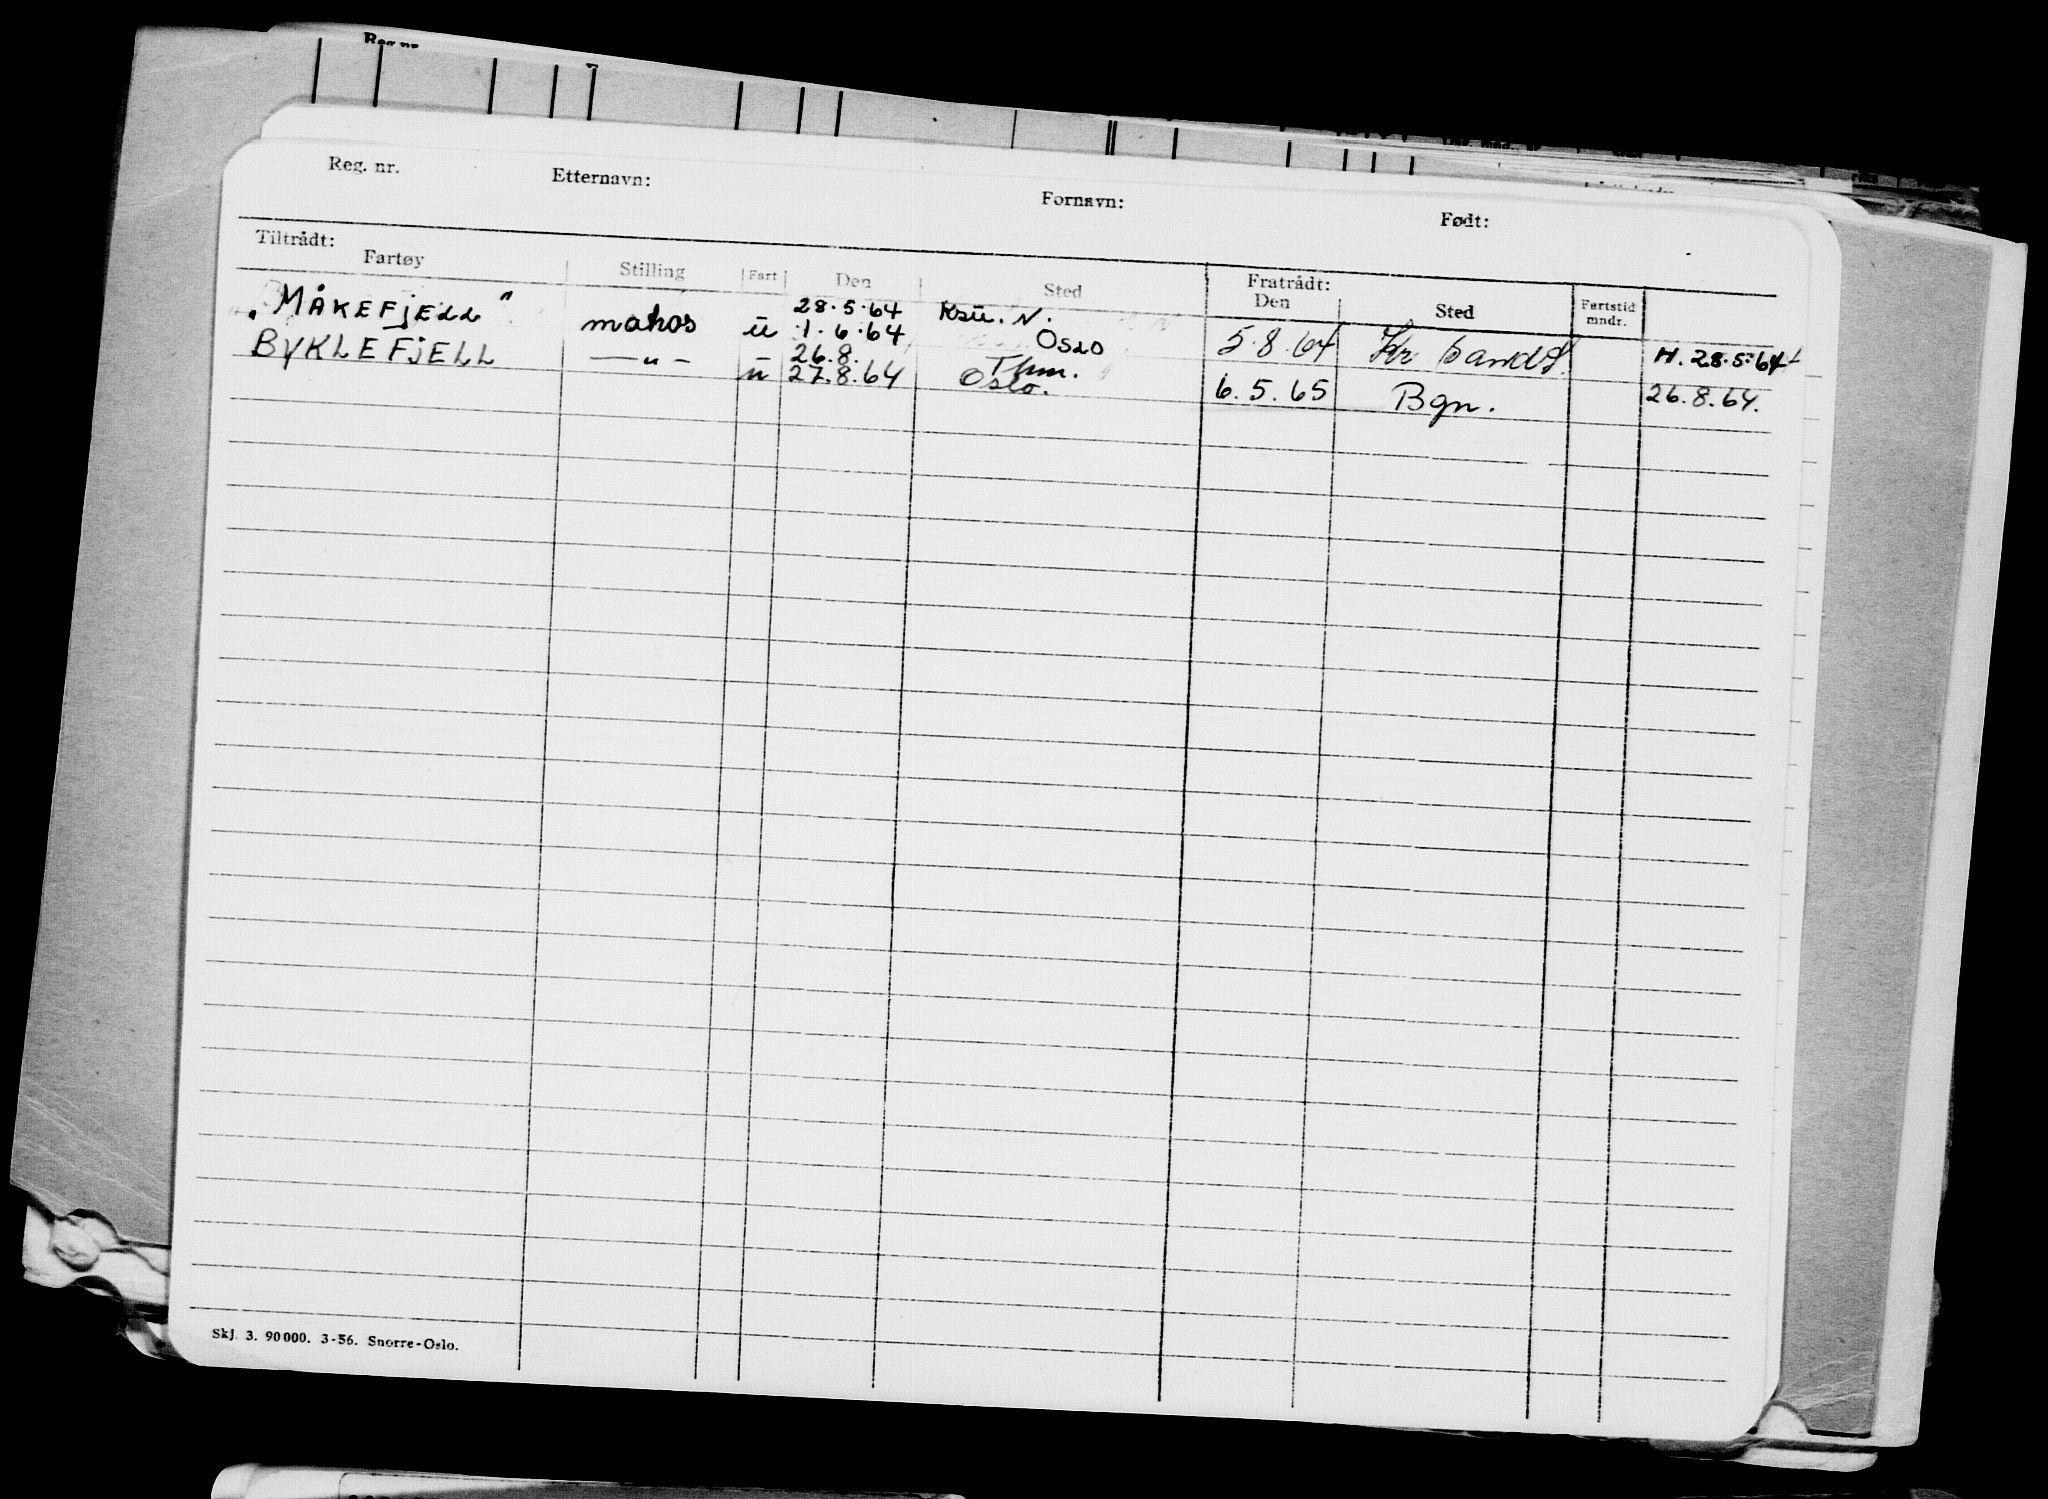 Reg. nr.
Reg. nr. Etternavn: Fornavn: Født:
Tiltrådt: Fratrådt:
Fartøy Stilling Fart Den Sted Den Sted Fartstid mndr.
28.5.64 Ksu. N.
"MÅKEFJELL" matros u 1.6.64 Oslo 5.8.64 Kr sand S. H. 28.5.64
26.8. Thm.
BYKLEFJELL —"— u 27.8.64 Oslo. 6.5.65 Bgn. 26.8.64.
Skj. 3. 90000. 3-56. Snorre-Oslo.